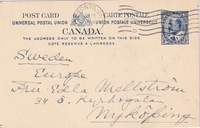 POST CARD CARTE POSTALE
UNIVERSAL POSTAL UNION UNION POSTALE UNIVERSELLE
CANADA.
THE ADDRESS ONLY TO BE WRITTEN ON THIS SIDE.
CÔTÉ RÉSERVÉ À L'ADRESSE.
Sweden
Europe
Fru Ella Mellström
34 S. Kyrkogatan
Nyköping